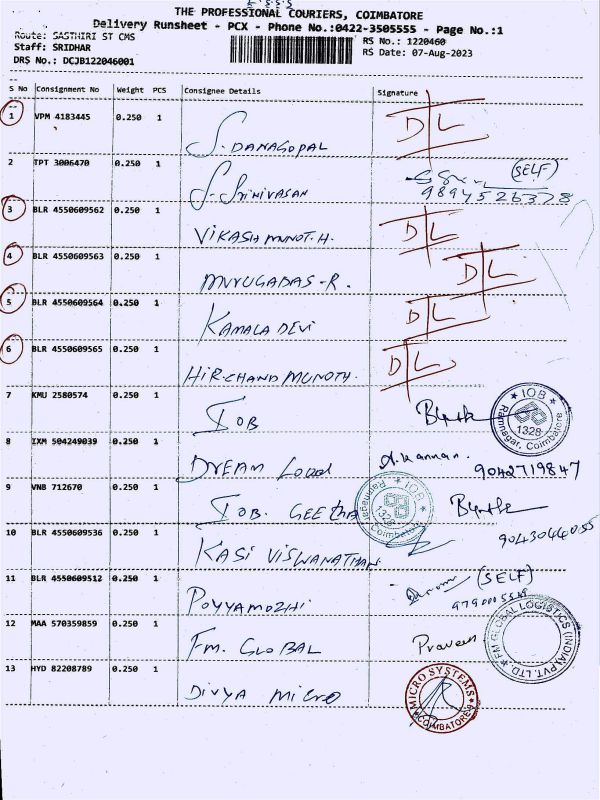 THE PROFESSIONAL COURIERS, COIMBATORE
Delivery Runsheet - PCX - Phone No.:0422-3505555 - Page No.:1
Route: SASTHIRI ST CMS
RS No.: 1220460
Staff: SRIDHAR
RS Date: 07-Aug-2023
DRS No.: DCJB122046001
S No Consignment No Weight PCS Consignee Details Signature
1 VPM 4183445 0.250 1 S. DANAGOPAL D L
2 TPT 3006470 0.250 1 S. SriNiVASAN (SELF)
9894526378
3 BLR 4550609562 0.250 1 VIKASH MUNOT. H. D L
4 BLR 4550609563 0.250 1 MURUGADAS - R. D L
5 BLR 4550609564 0.250 1 KAMALA DEVI D L
6 BLR 4550609565 0.250 1 HIR.CHAND MUNOTH. D L
7 KMU 2580574 0.250 1 IOB
IOB 1328 Ramnagar, Coimbatore
8 IXM 504249039 0.250 1 DREAM A. Kannan. 9042719847
9 VNB 712670 0.250 1 IOB. GEETHA
IOB 1328 Ramnagar, Coimbatore
10 BLR 4550609536 0.250 1 KASI VISWANATHAN
11 BLR 4550609512 0.250 1 POYYAMOZHI (SELF)
12 MAA 570359859 0.250 1 FM. GLOBAL Praveen
FM GLOBAL LOGISTICS (INDIA) PVT. LTD
13 HYD 82208789 0.250 1 DIVYA MICRO
MICRO SYSTEMS COIMBATORE